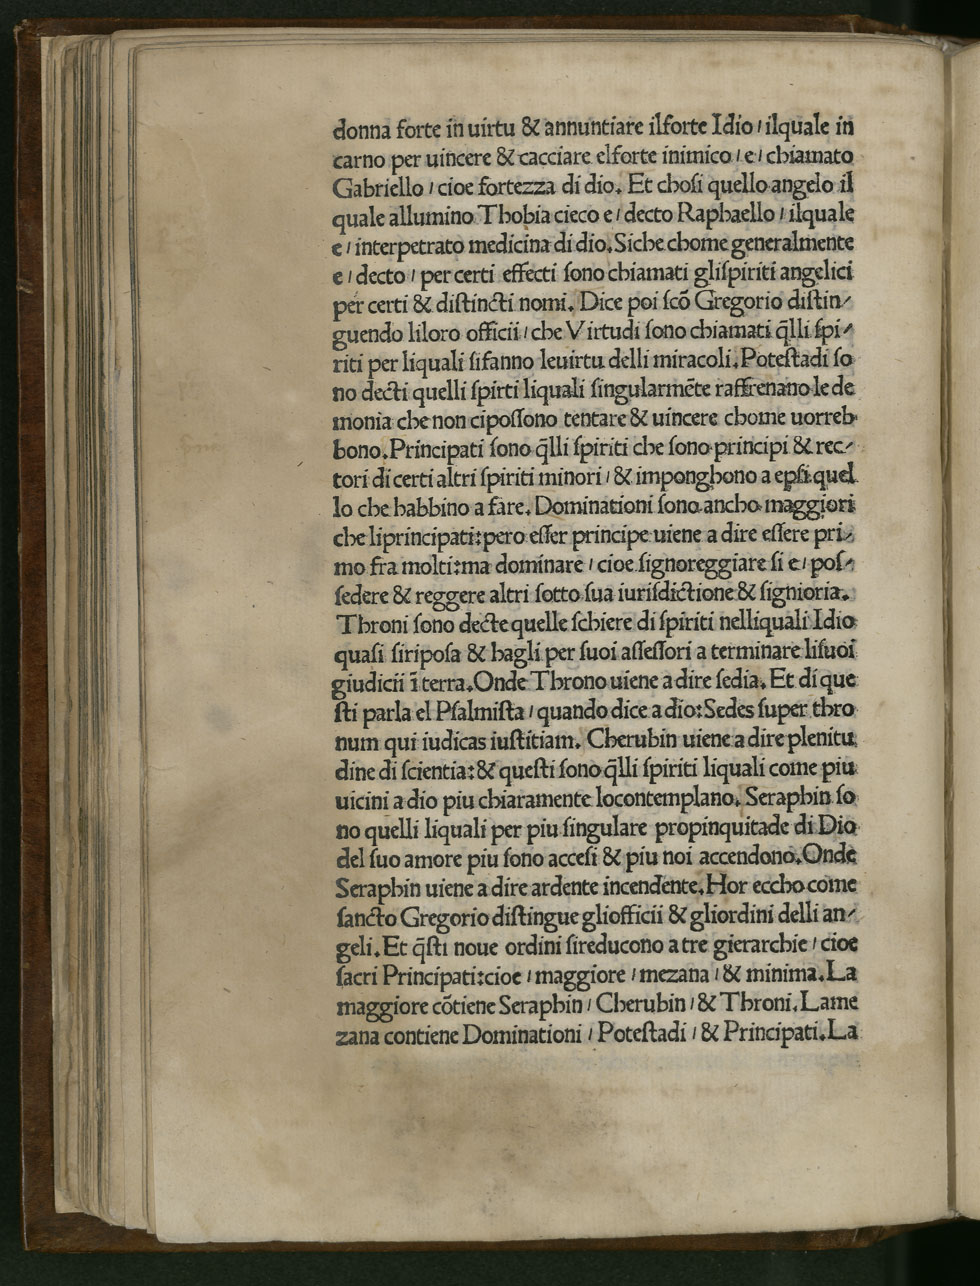 donna forte in uirtu & annuntiare ilforte Idio / ilquale in
carno per uincere & cacciare elforte inimico / e / chiamato
Gabriello / cioe fortezza di dio. Et choſi quello angelo il
quale allumino Thobia cieco e / decto Raphaello / ilquale
e / interpetrato medicina di dio. Siche chome generalmente
e / decto / per certi effecti ſono chiamati gliſpiriti angelici
per certi & diſtincti nomi. Dice poi ſcō Gregorio diſtin⸗
guendo liloro officii / che Virtudi ſono chiamati q̄lli ſpi⸗
riti per liquali ſifanno leuirtu delli miracoli. Poteſtadi ſo
no decti quelli ſpirti liquali ſingularmēte raffrenano le de
monia che non cipoſſono tentare & uincere chome uorreb
bono. Principati ſono q̄lli ſpiriti che ſono principi & rec⸗
tori di certi altri ſpiriti minori / & imponghono a epſi quel
lo che habbino a fare. Dominationi ſono ancho maggiori
che liprincipati: pero eſſer principe uiene a dire eſſere pri⸗
mo fra molti: ma dominare / cioe ſignoreggiare ſi e / poſ⸗
ſedere & reggere altri ſotto ſua iuriſdictione & ſignioria.
Throni ſono decte quelle ſchiere di ſpiriti nelliquali Idio
quaſi ſiripoſa & hagli per ſuoi aſſeſſori a terminare liſuoi
giudicii ī terra. Onde Throno uiene a dire ſedia. Et di que
ſti parla el Pſalmiſta / quando dice a dio: Sedes ſuper thro
num qui iudicas iuſtitiam. Cherubin uiene a dire plenitu
dine di ſcientia: & queſti ſono q̄lli ſpiriti liquali come piu
uicini a dio piu chiaramente locontemplano. Seraphin ſo
no quelli liquali per piu ſingulare propinquitade di Dio
del ſuo amore piu ſono acceſi & piu noi accendono. Onde
Seraphin uiene a dire ardente incendente. Hor eccho come
ſancto Gregorio diſtingue gliofficii & gliordini delli an⸗
geli. Et q̄ſti noue ordini ſireducono a tre gierarchie / cioe
ſacri Principati: cioe / maggiore / mezana / & minima. La
maggiore cōtiene Seraphin / Cherubin / & Throni. La me
zana contiene Dominationi / Poteſtadi / & Principati. La